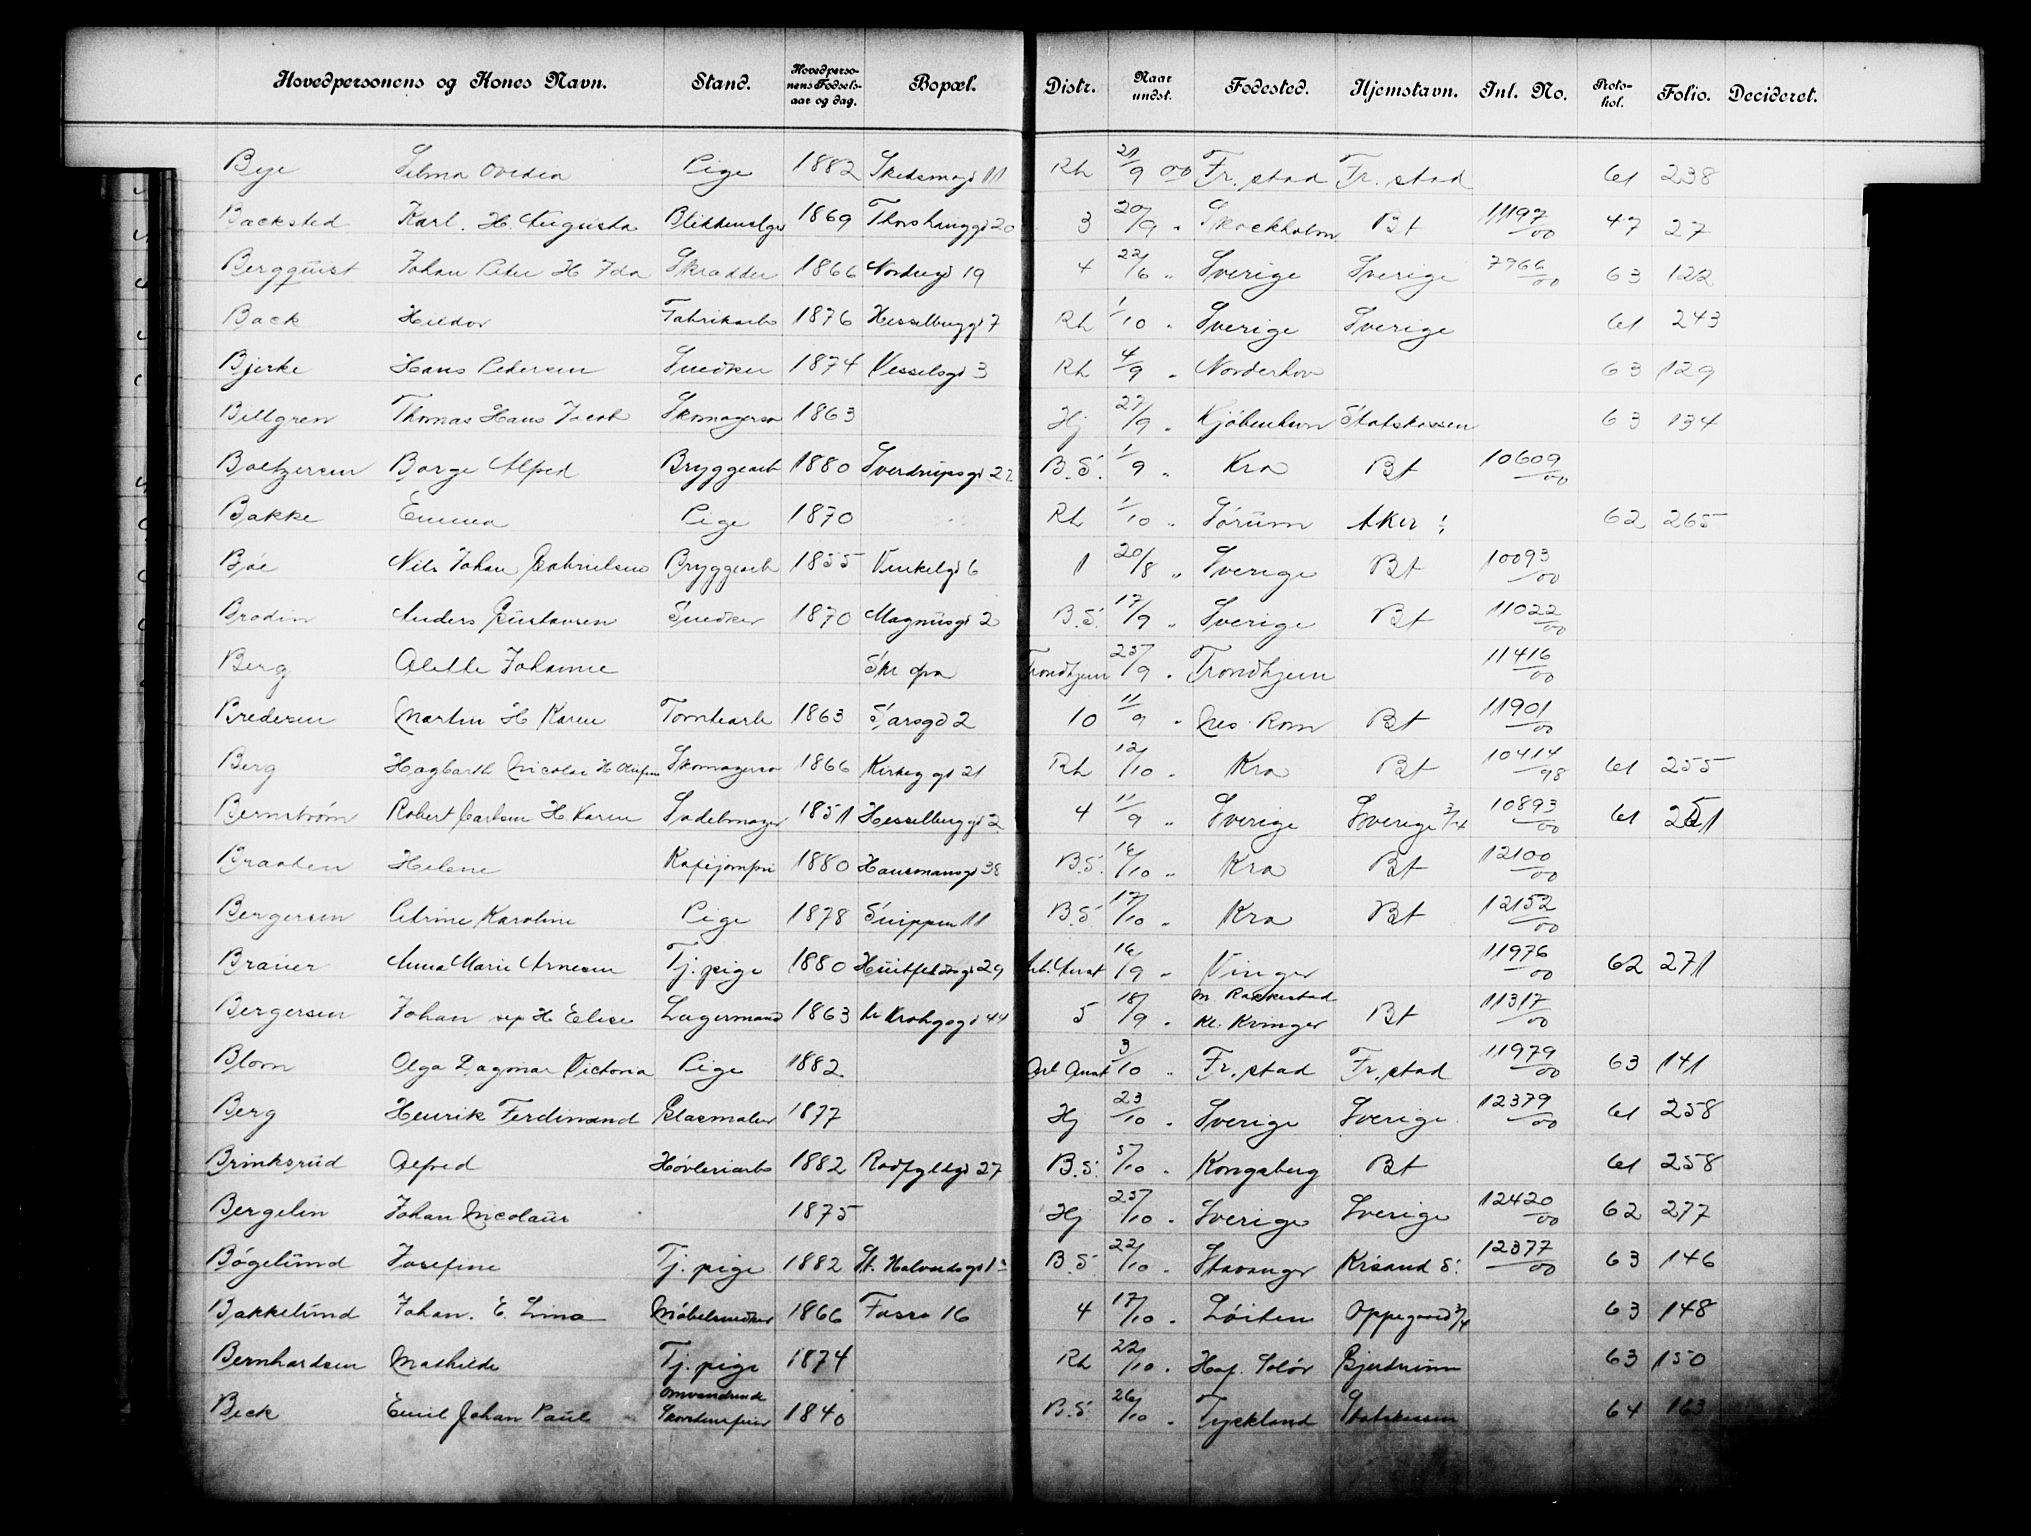 Hovedpersonens og Kones Navn. Stand. Hovedperso-nens Fødsels-aar og dag. Bopæl. Distr. Naar undst. Fødested. Hjemstavn. Inl. No. Proto-kol. Folio. Decideret.
Bye Selma Ovidia Pige 1882 Skedsmogd 11 Rh 21/9 00 Fr. stad Fr. stad 61 238
Backsted Karl. H. Augusta 1869 Thorshauggd 20 3 20/9 " Stockholm Bt 11197/00 47 27
Bergquist Johan Peter H Ida Skrædder 1866 Nordregd 19 4 22/6 " Sverige Sverige 7966/00 63 122
Back Hildor Fabrikarb 1876 Hesselberggd 7 Rh 1/10 " Sverige Sverige 61 243
Bjerke Hans Pedersen Snedker 1874 Vesselsgd 3 Rh 4/9 " Norderhov 63 129
Billgren Thomas Hans Jacob Skomagersv 1863 Hj 27/9 " Kjöbenhavn Statskassen 63 134
Boltzersen Borge Alfred Bryggearb 1880 Sverdrupsgd 22 B.S. 1/9 " Kra Bt 10609/00
Bakke Emma Pige 1870 Rh 1/10 " Sörum Aker 62 265
Böe Nils Johan Gabrielsen Bryggearb 1855 Vinkelgd 6 1 20/8 " Sverige Bt 10093/00
Brodin Anders Gustavsen Snedker 1870 Magnusgd 2 B.S. 17/9 " Sverige Bt 11022/00
Berg Alette Johanne Trondhjem 25/9 " Trondhjem 11416/00
Bredesen Martin H Karen Tomtearb 1863 Sarsgd 2 10 11/9 " Nes Rom Bt 11901/00
Berg Hagbarth Nicolai H Skomagersv 1866 gd 21 Rh 12/10 " Kra Bt 10414/98 61 255
Bernström Robert Carlsen H. Karen Sadelmager 1851 Hesselberggd 2 4 11/9 " Sverige Sverige 3/4 10893/00 61 251
Braaten Helene Kafejomfru 1880 Hausmansgd 38 B.S. 16/10 " Kra Bt 12100/00
Bergersen Petrine Karoline Pige 1878 Snippen 11 B.S 17/10 " Kra Bt 12152/00
Brauer Anna Marie Arnesen Tj. pige 1880 Huitfeldtsgd 29 16/9 " Vinger 11976/00 62 271
Bergersen Johan sep H Elise Lagermand 1863 Kr Krohgsgd 44 5 18/9 " m. Rackestad Bt 11317/00
Kl. Kvinger
Blom Olga Dagmar Victoria Pige 1882 Arb Anst 3/10 " Fr. stad Fr. stad 11979/00 63 141
Berg Henrik Ferdinand Glasmaler 1877 Hj 23/10 " Sverige Sverige 12379/00 61 258
Brinksrud Alfred Høvleriarb 1882 Rodfyldgd 27 B.S. 5/10 " Kongsberg Bt 61 258
Bergelin Johan Nicolaus 1875 Hj 25/10 " Sverige Sverige 12420/00 62 277
Bögelund Josefine Tj. pige 1882 St. Halvardsgd 1 B.S 22/10 " Stavanger Krsand S. 12377/00 63 146
Bakkelund Johan. E. Lina Möbelsnedker 1866 Fosse 16 4 17/10 " Löiten Oppegaard 3/4 63 148
Bernhardsen Mathilde Tj. pige 1874 Rh 22/10 " Hof. Solör Gjerdrum 63 150
Beck Emil Johan Paul omvandrende Skorstensfeier 1840 B.S. 26/10 " Tyskland Statskassen 64 163